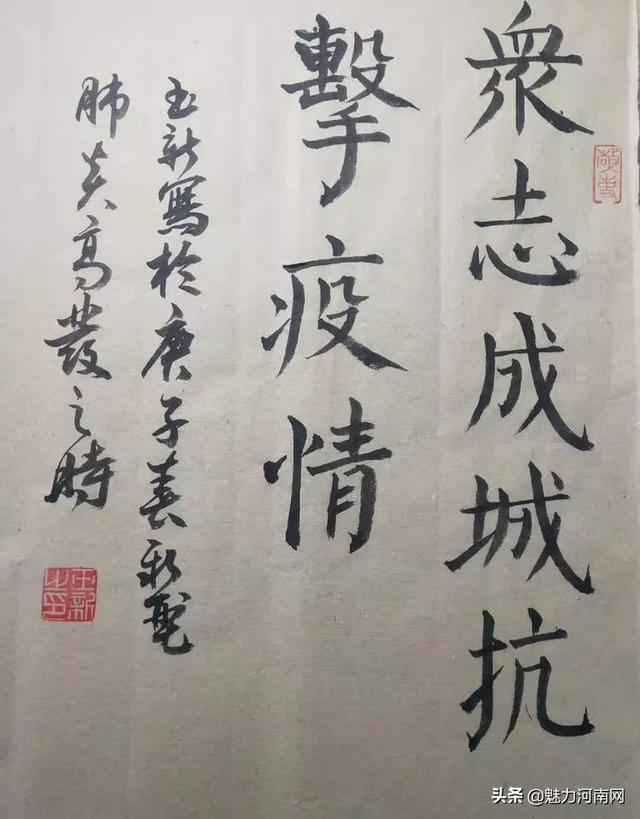 眾志成城抗
擊疫情
玉新寫於庚子春新型
肺炎高發之時
头条 @魅力河南网